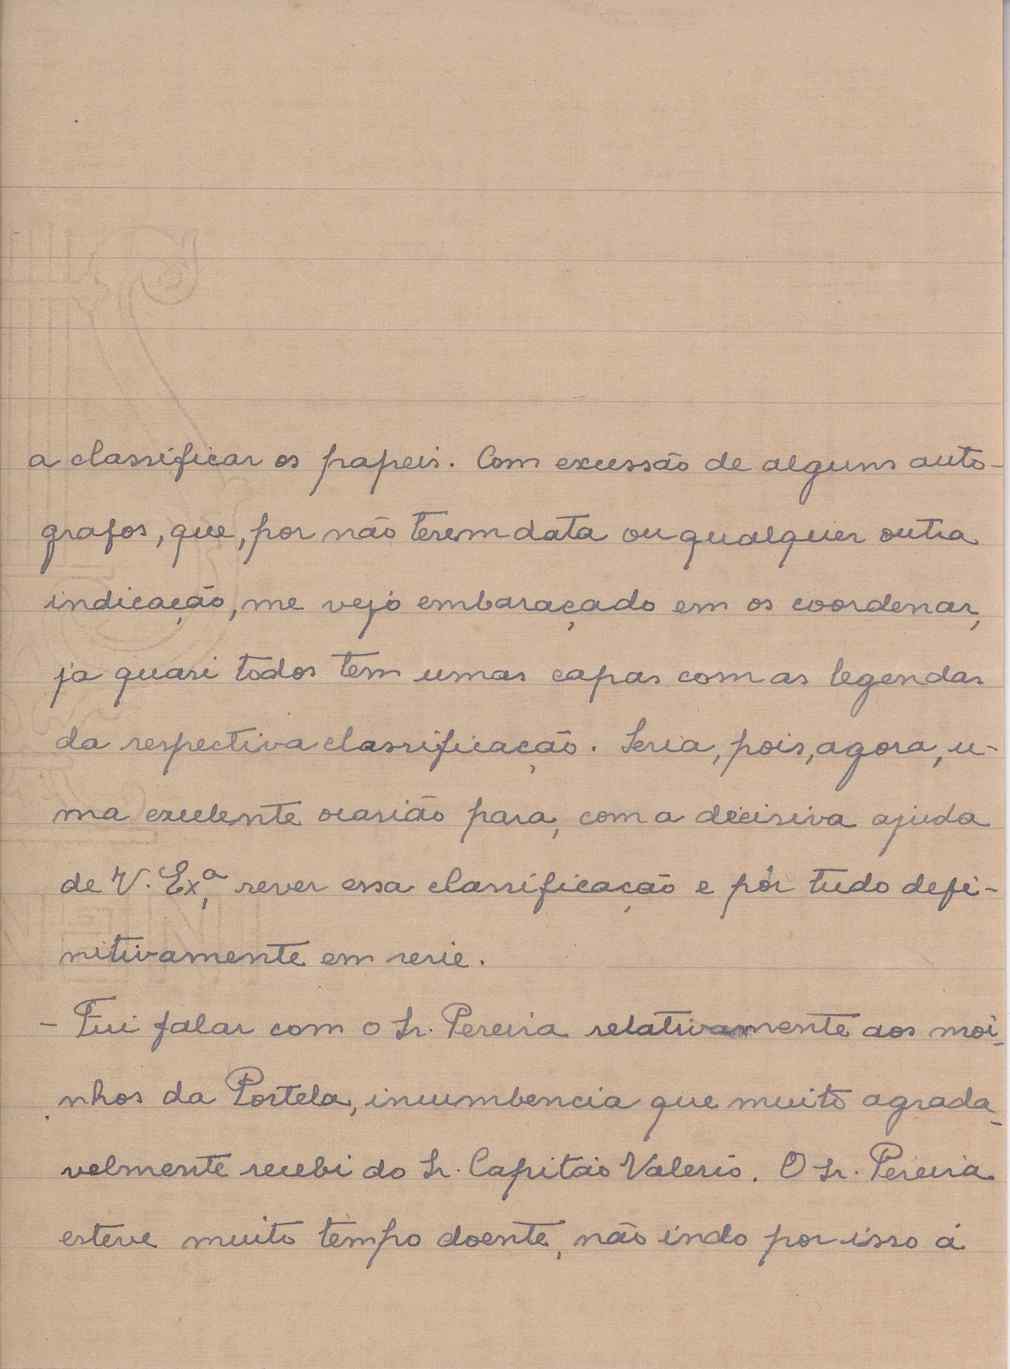 a classificar os papeis. Com excessão de alguns auto-
grafos, que, por não terem data ou qualquer outra
indicação, me vejo embaraçado em os coordenar,
ja quasi todos tem umas capas com as legendas
da respectiva classificação. Seria, pois, agora, u-
ma excelente ocasião para, com a decisiva ajuda
de V. Exª, rever essa classificação e pôr tudo defi-
nitivamente em serie.
- Fui falar com o Sr. Pereira relativamente aos moi-
nhos da Portela, incumbencia que muito agrada-
velmente recebi do Sr. Capitão Valerio. O Sr. Pereira
esteve muito tempo doente, não indo por isso á